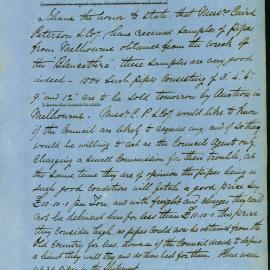 I have the honor to state, that Messrs Caird
Paterson & Co, have received samples of pipes
from Melbourne obtained from the wreck of
the "Gleneotera", these samples are very good
indeed - 1500 such pipes consisting of 3" 4" 6"
9" and 12" are to be sold tomorrow by Auction in
Melbourne. Messrs C. P. & Co would like to know
if the Council are likely to require any, and if so they
would be willing to act as the Councils Agent only
charging a small Commission for their trouble, at
the same time they are of opinion the pipes being in
such good condition will fetch a good price say
£10.10.0 per Ton, and with freight and charges they could
not be delivered here for less than £11.10.0 this price
they consider high, as pipes could now be obtained from the
Old Country for less, however if the Council decide to define
a limit they will try and do their best for them. There were
pipes in the